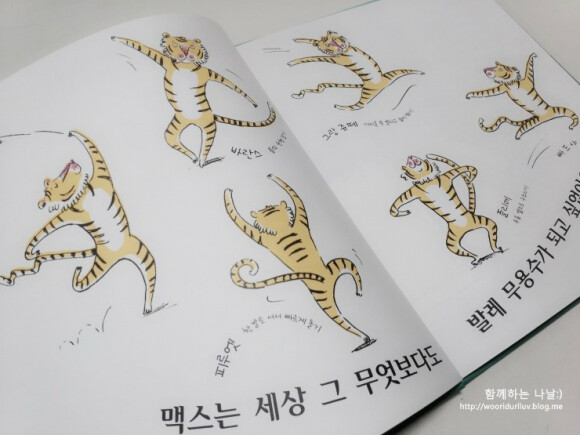 바란스
그랑 쥬떼
피루엣
한 발을 서서 빠르게 돌기
쁠리에
맥스는 세상 그 무엇보다도
발레 무용수가 되고 싶었
함께하는 나날:)
http://wooriduriluv.blog.me